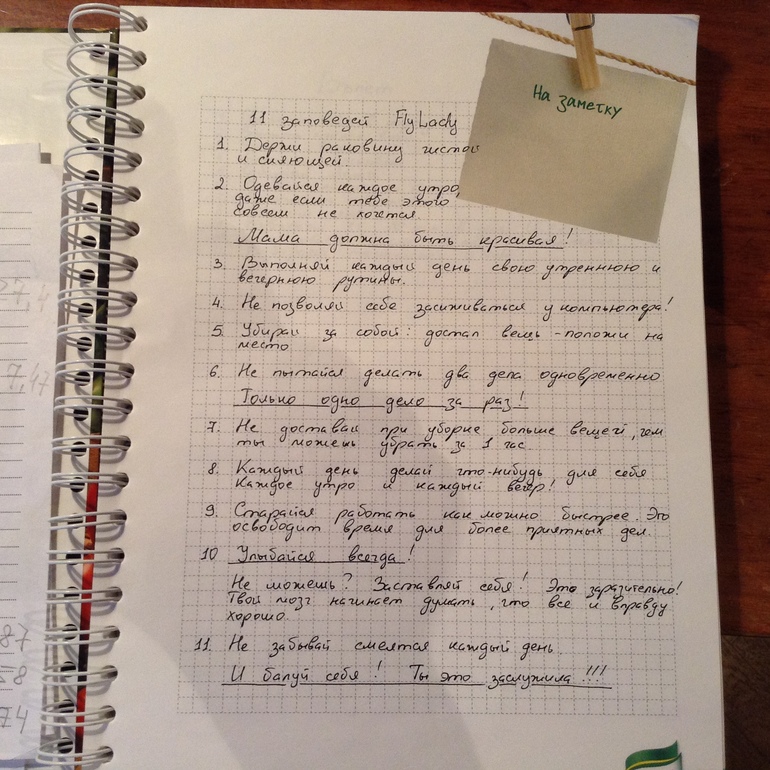 На заметку
11 заповедей FlyLady
1. Держи раковину чистой
и сияющей.
2. Одевайся каждое утро,
даже если тебе этого
совсем не хочется.
Мама должна быть красивая!
3. Выполняй каждый день свою утреннюю и
вечернюю рутины.
4. Не позволяй себе засиживаться у компьютера!
5. Убирай за собой: достал вещь - положи на
место
6. Не пытайся делать два дела одновременно
Только одно дело за раз!
7. Не доставай при уборке больше вещей, чем
ты можешь убрать за 1 час.
8. Каждый день делай что-нибудь для себя
Каждое утро и каждый вечер!
9. Старайся работать как можно быстрее. Это
освободит время для более приятных дел.
10 Улыбайся всегда!
Не можешь? Заставляй себя! Это заразительно!
Твой мозг начинает думать, что все и вправду
хорошо.
11. Не забывай смеятся каждый день.
И балуй себя! Ты это заслужила!!!
27,4
7,17
87
58
74